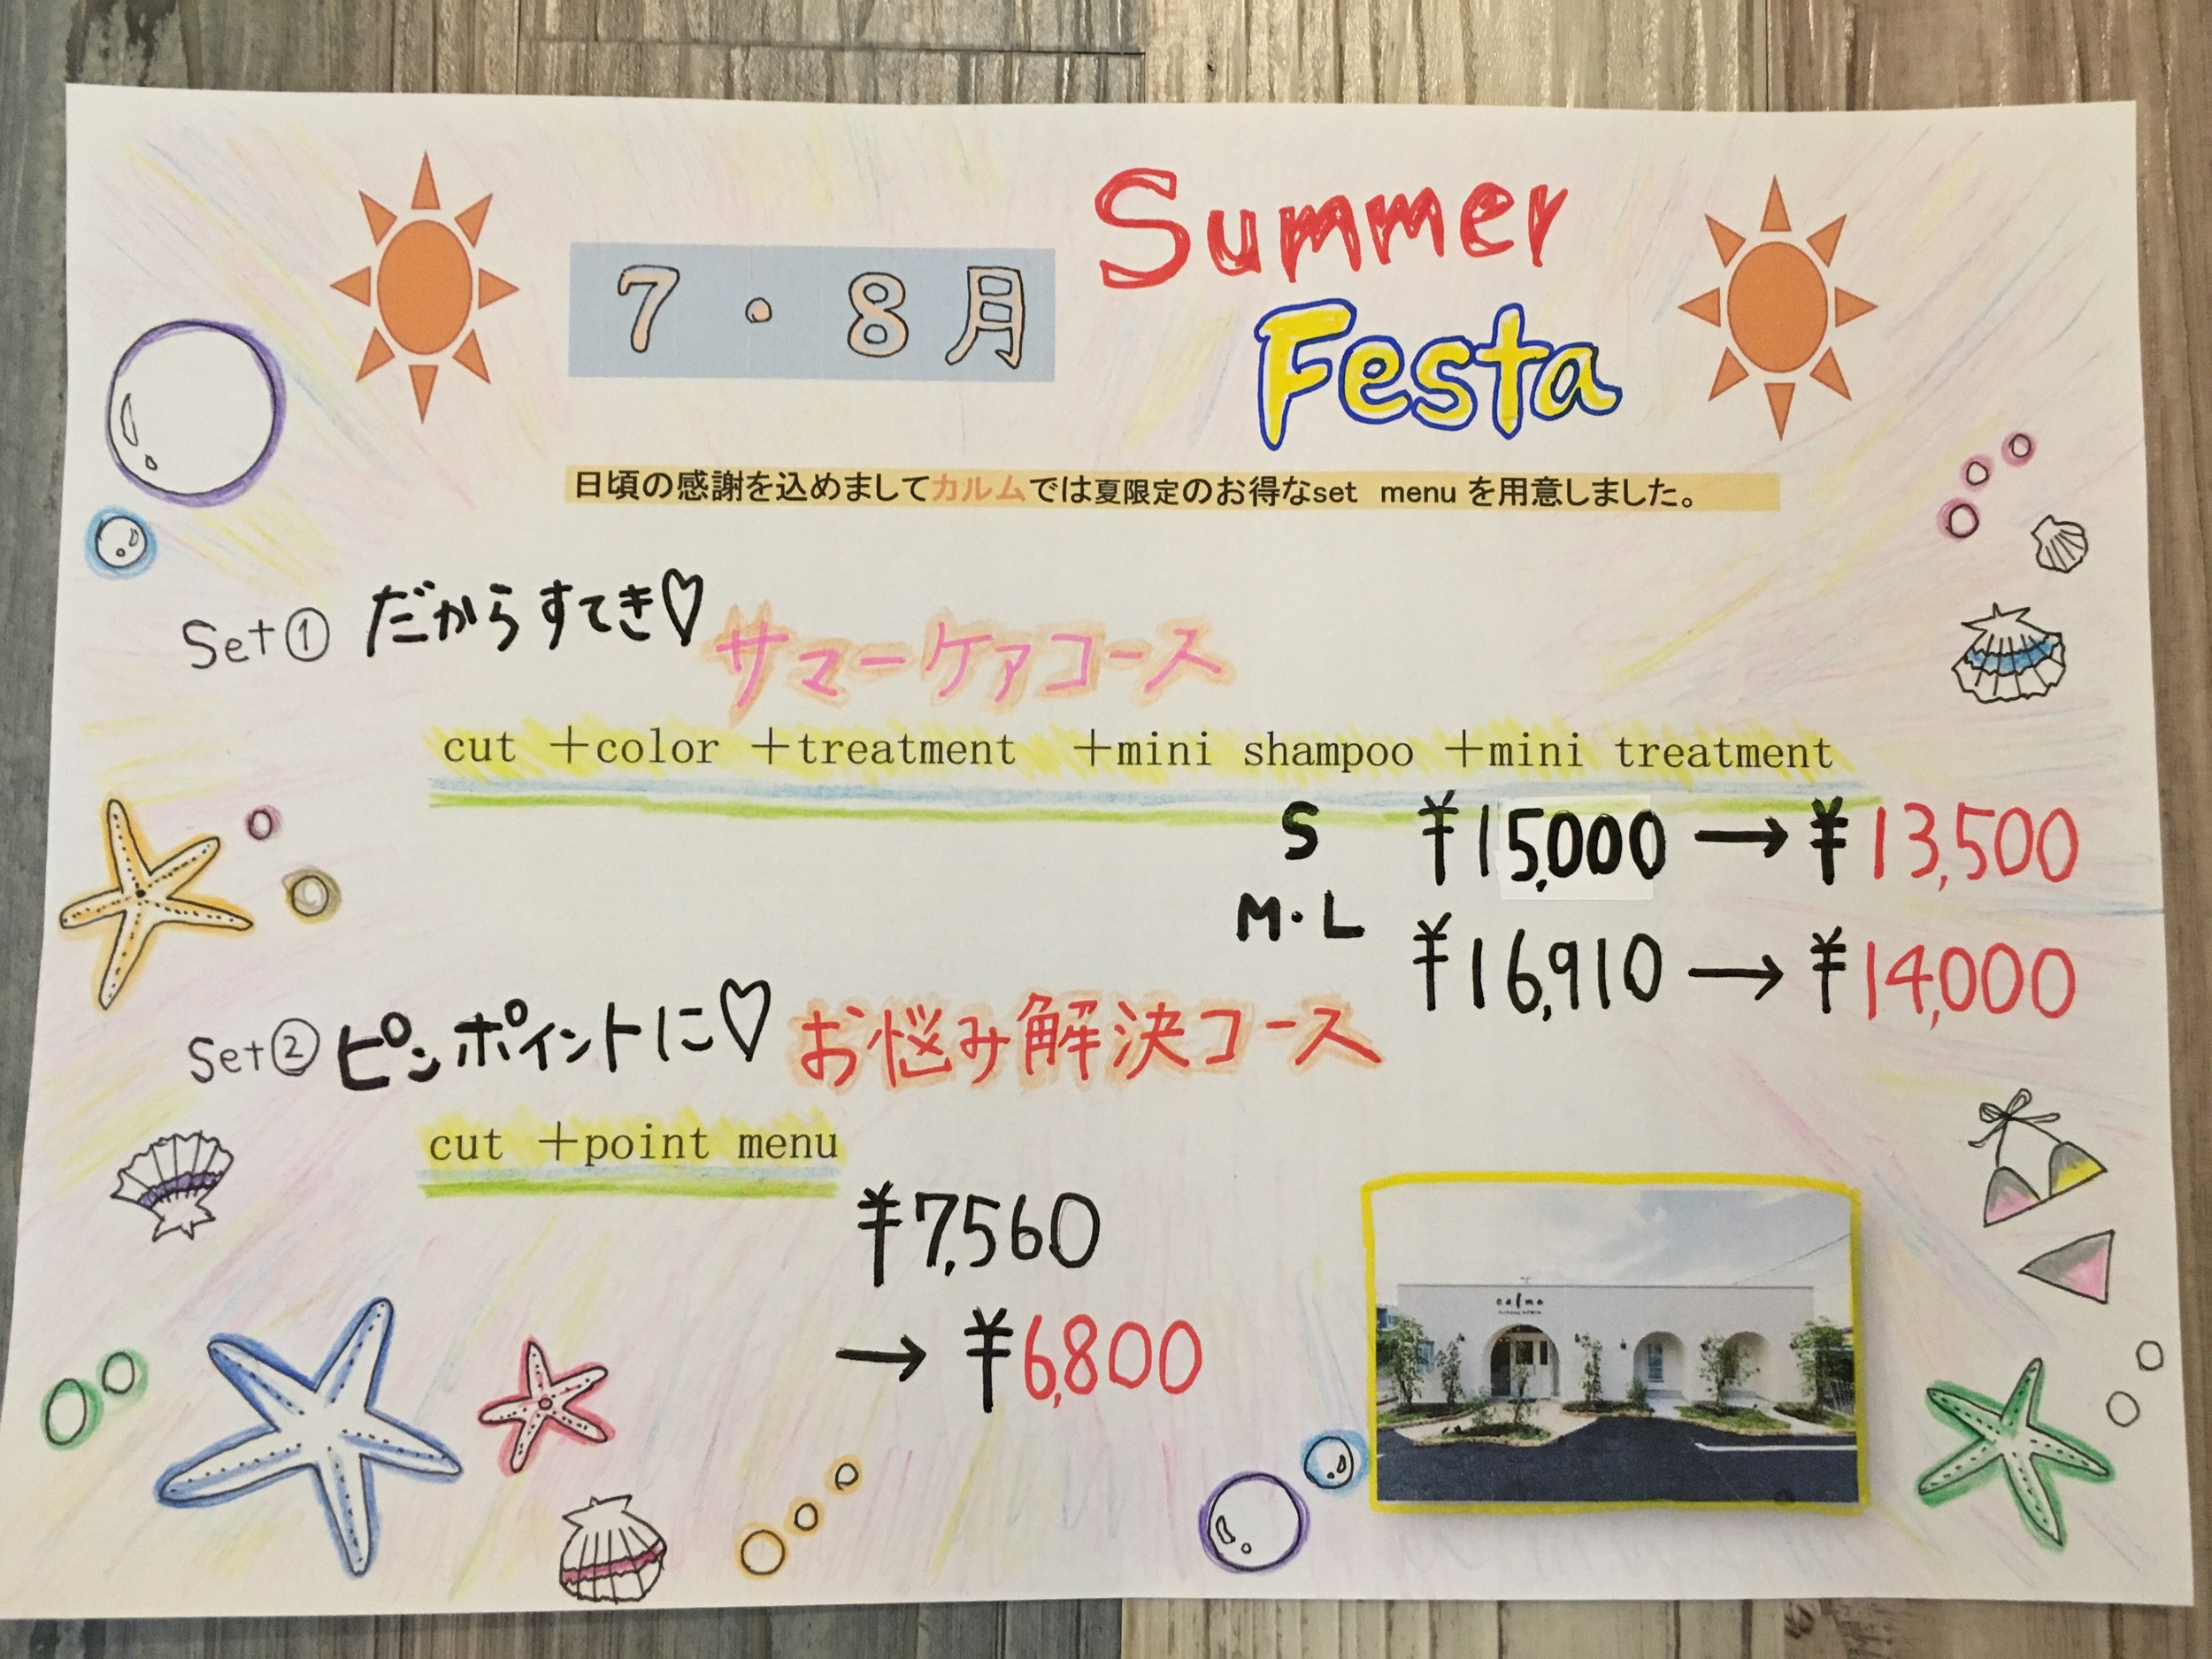 7・8月
Summer
Festa
日頃の感謝を込めましてカルムでは夏限定のお得なset menu を用意しました。
Set① だからすてき♡ サマーケアコース
cut ＋color ＋treatment ＋mini shampoo ＋mini treatment
S ¥15,000 → ¥13,500
M・L ¥16,910 → ¥14,000
Set② ピンポイントに♡ お悩み解決コース
cut ＋point menu
¥7,560
→ ¥6,800
calme